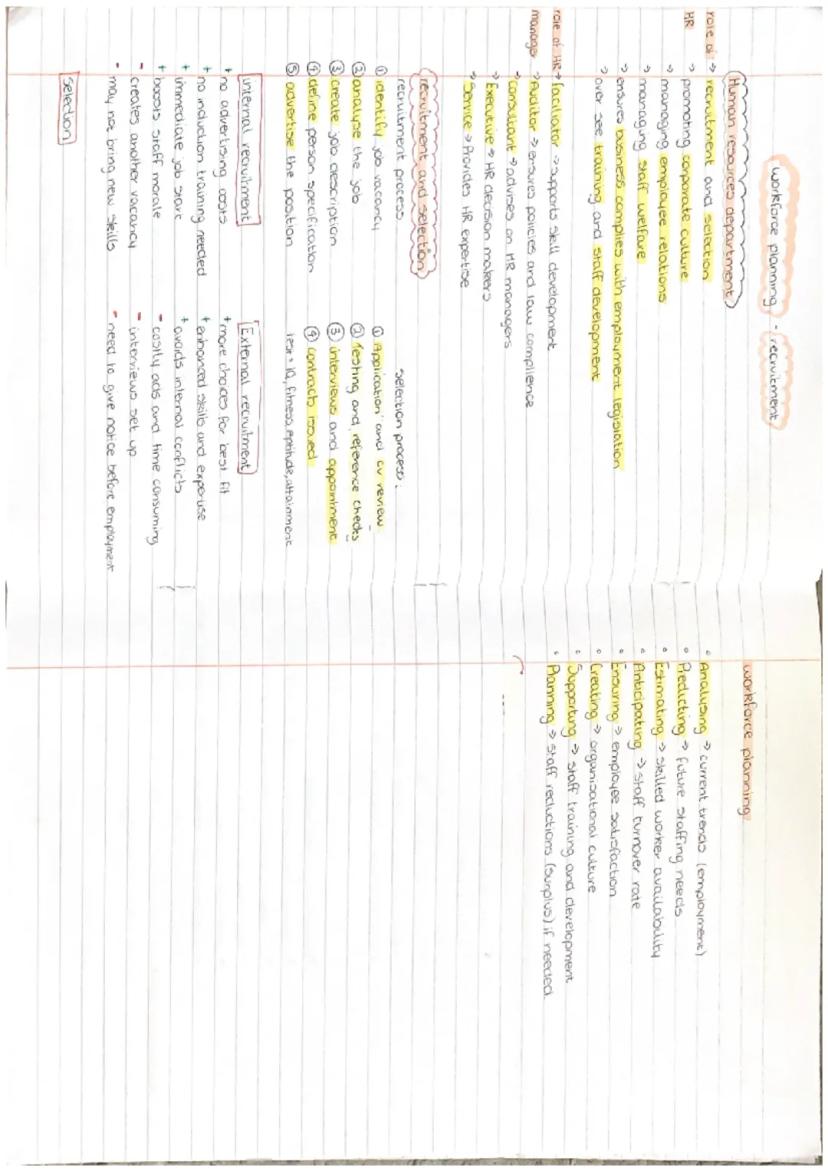 workforce planning - recruitment
Human resources department
role of → recruitment and selection
HR → promoting corporate culture
→ managing employee relations
→ managing staff welfare
→ ensures business complies with employment legislation
→ over see training and staff development
role of HR → facilitator → supports skill development
manager → Auditor → ensures policies and law complience
→ consultant → advises on HR managers
→ Executive → HR decision makers
→ Service → Provides HR expertise
recruitment and selection
recruitment process
① identify job vacancy
② analyse the job
③ create job description
④ define person specification
⑤ advertise the position
selection process.
① Application and cv review
② Testing and reference checks
③ interviews and appointment
④ contracts issued
Test = IQ, fitness, aptitude, attainment
internal recruitment
+ no advertising costs
+ no induction training needed
+ immediate job start
+ boosts staff morale
- creates another vacancy
- may not bring new skills
External recruitment
+ more choices for best fit
+ enhanced skills and expertise
+ avoids internal conflicts
- costly ads and time consuming
- interviews set up
- need to give notice before employment
Selection
workforce planning
• Analysing → current trends (employment)
• Predicting → future staffing needs
• Estimating → skilled worker availability
• Anticipating → staff turnover rate
• Ensuring → employee satisfaction
• Creating → organisational culture
• Supporting → staff training and development
• Planning → staff reductions (surplus) if needed.